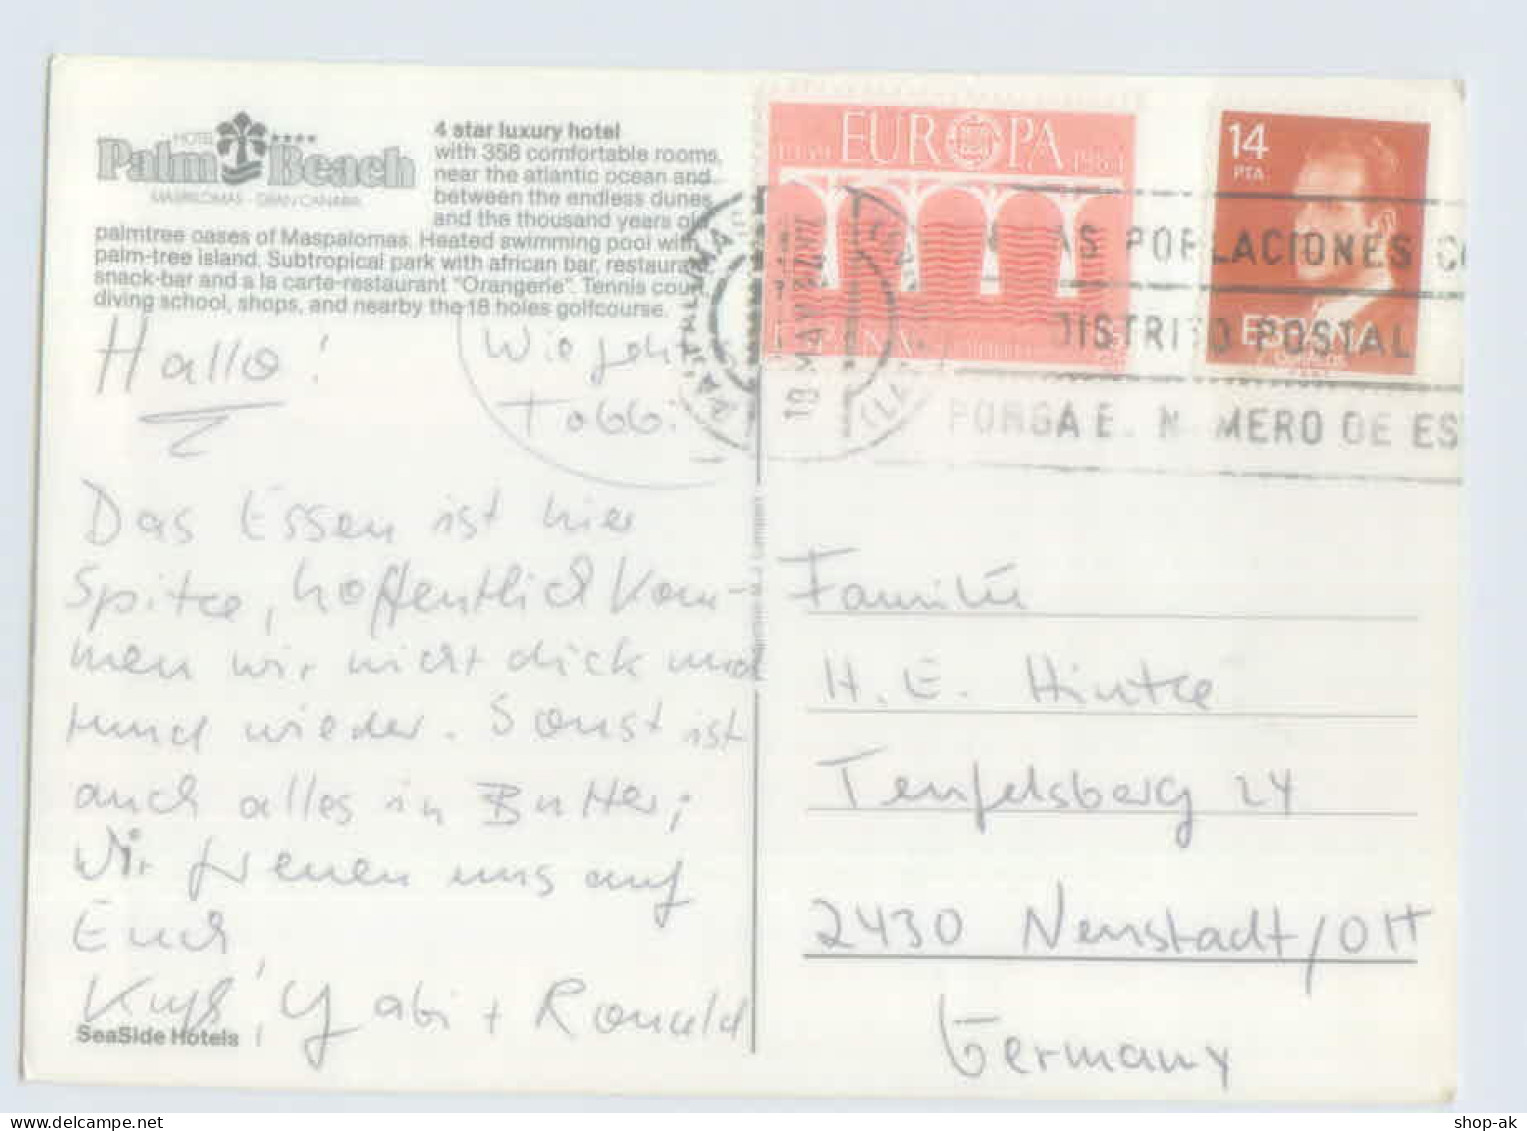 HOTEL ****
Palm Beach
MASPALOMAS - GRAN CANARIA
4 star luxury hotel
with 358 comfortable rooms,
near the atlantic ocean and
between the endless dunes
and the thousand years old
palmtree oases of Maspalomas. Heated swimming pool with
palm-tree island. Subtropical park with african bar, restaurant,
snack-bar and a la carte-restaurant "Orangerie". Tennis court,
diving school, shops, and nearby the 18 holes golfcourse.
Hallo!
Wie geht
Tobbi
Das Essen ist hier
Spitze, hoffentlich kom-
men wir nicht dick und
rund wieder. Sonst ist
auch alles in Butter;
Wir freuen uns auf
Euch,
Kuß, Gabi + Ronald
SeaSide Hotels
EUROPA
1984
ESPAÑA
14
PTA
ESPAÑA
18 MAY
(LAS
AS POBLACIONES CO
DISTRITO POSTAL
PONGA E. NUMERO DE ES
Familie
H. E. Hintze
Teufelsberg 24
2430 Neustadt/OH
Germany
shop-ak